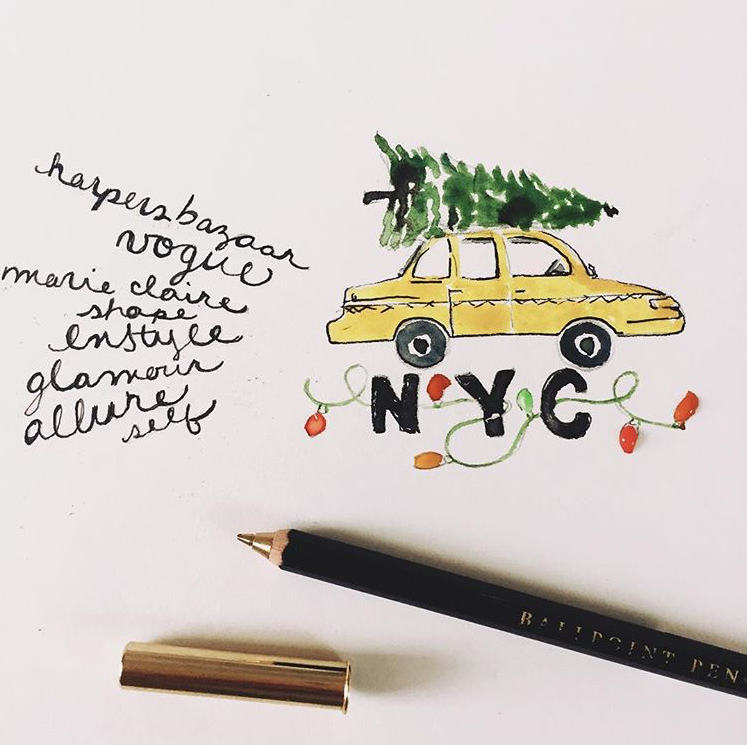 harpers bazaar
vogue
marie claire
shape
enstyle
glamour
allure
self
NYC
BALLPOINT PEN